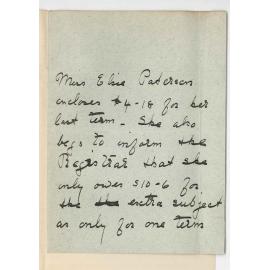 Miss Elsie Paterson
encloses $4-18 for her
last term - She also
begs to inform the
Registrar that she
only owes $10-6 for
the the extra subject
as only for one term